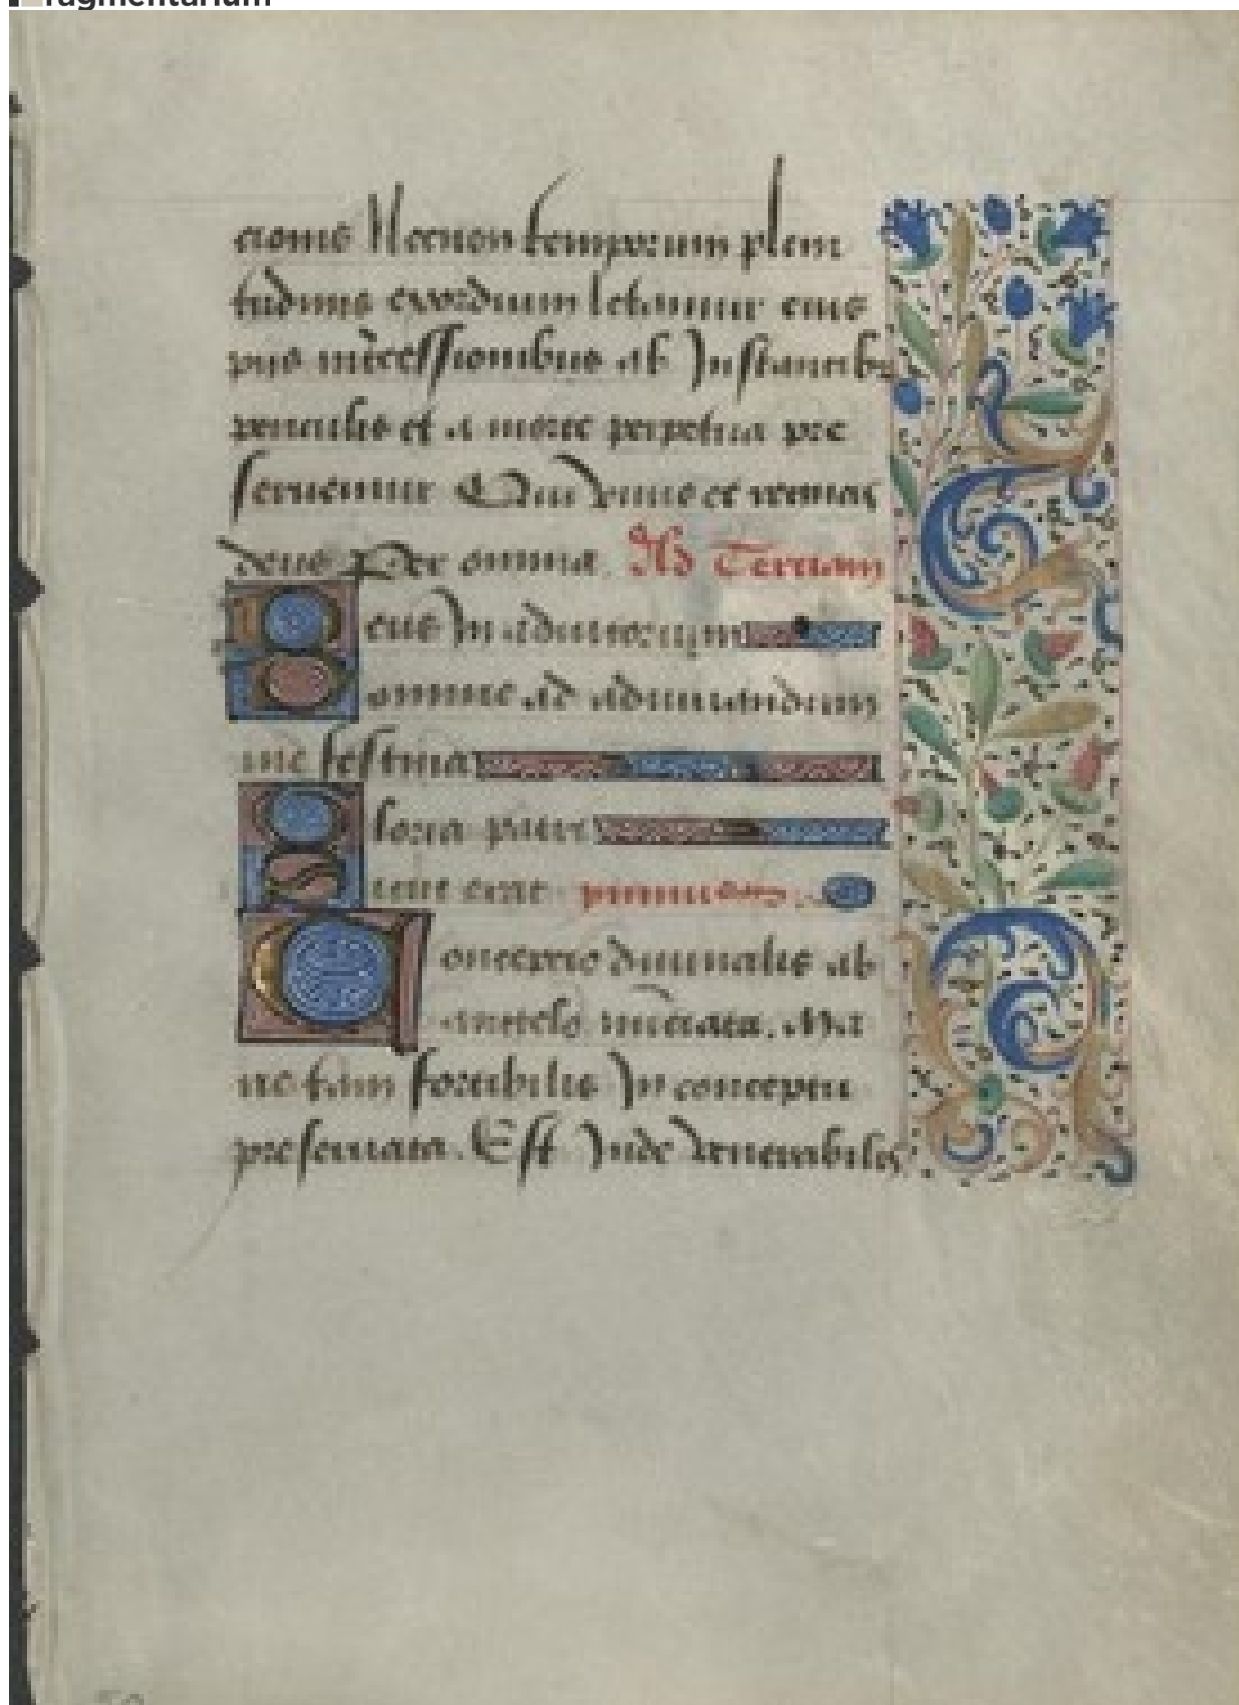 ragmentarium
cionis Necnon temporum pleni
tudinis exordium letamur eius
piis intercessionibus ab Instantibus
periculis et a morte perpetua pre
seruemur Qui viuis et regnas
deus Per omnia. Ad Terciam
Deus In adiutorium
Domine ad adiuuandum
me festina
Gloria patri
Sicut erat
Conceptio virginalis ab
angelo
fuit In conceptu
preseruata. Est Inde venerabilis